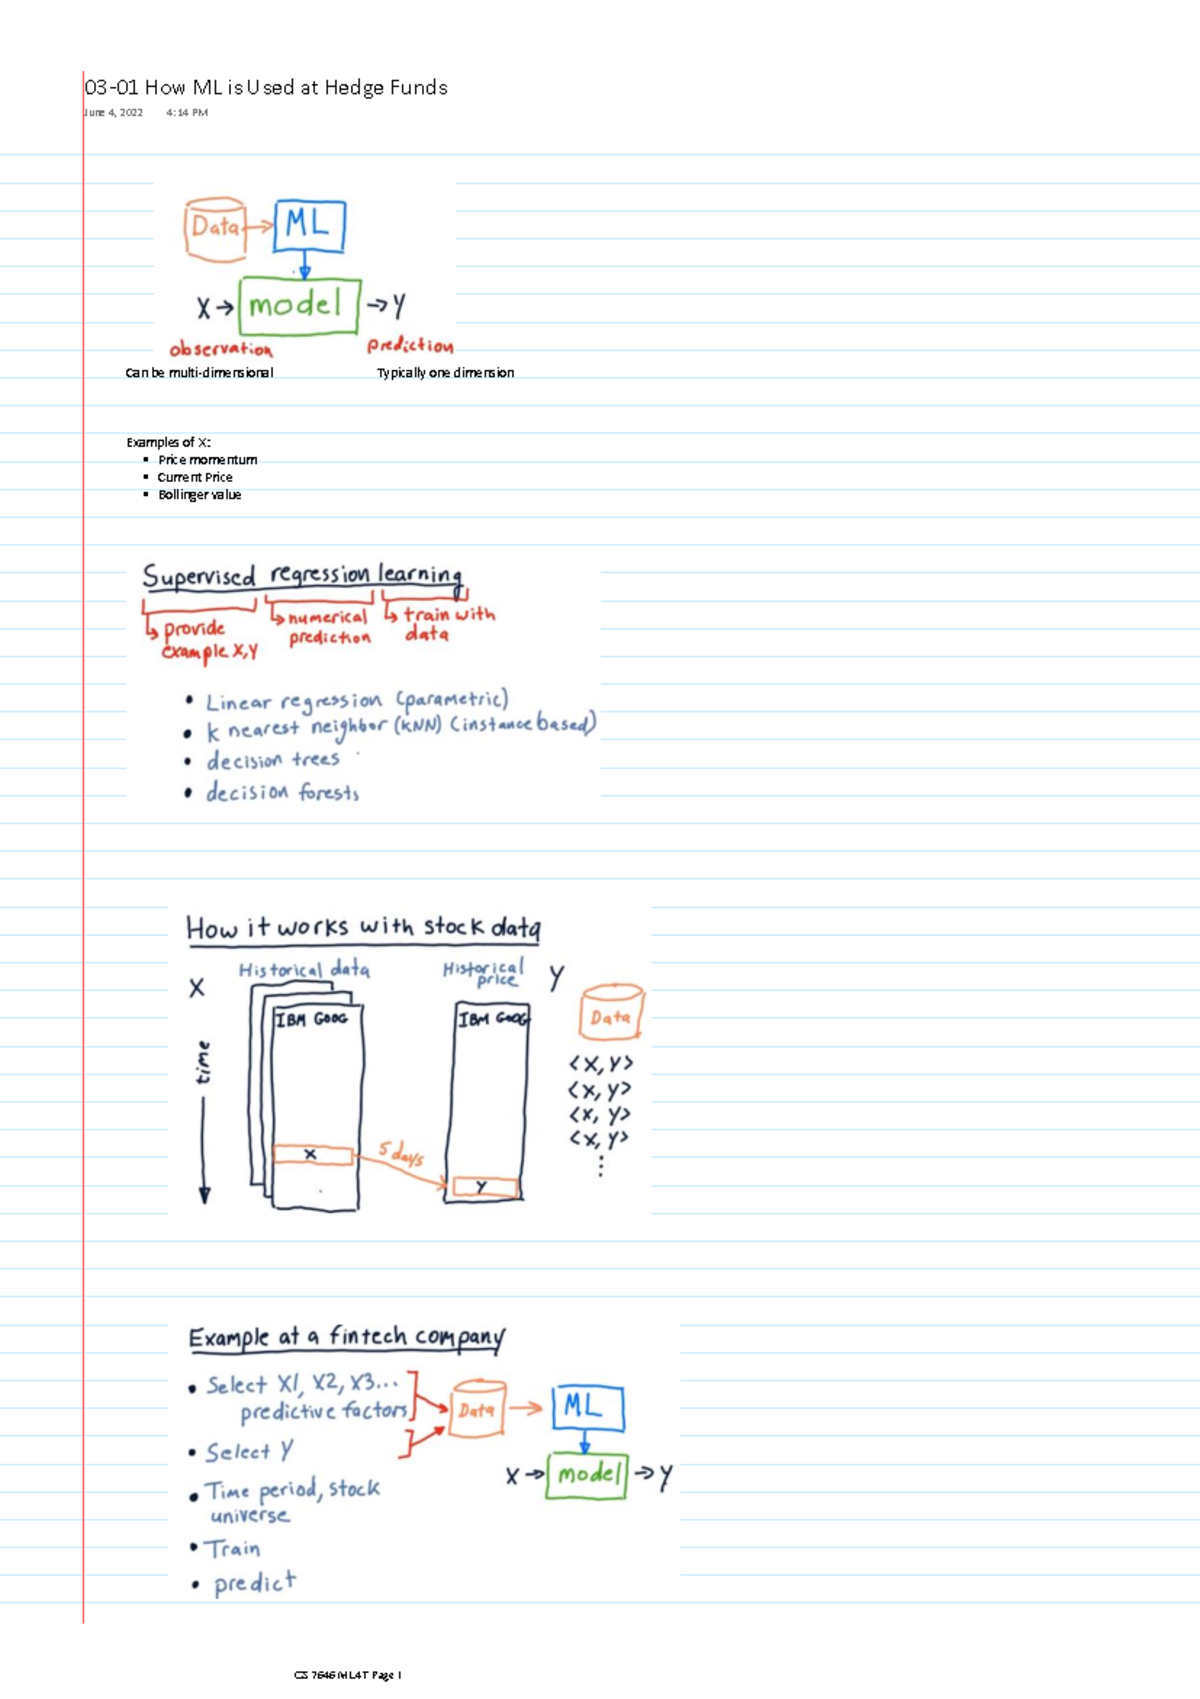 03-01 How ML is Used at Hedge Funds
June 4, 2022 4:14 PM
Data
ML
X → model → Y
observation prediction
Can be multi-dimensional Typically one dimension
Examples of X:
▪ Price momentum
▪ Current Price
▪ Bollinger value
Supervised regression learning
provide example X,Y
numerical prediction
train with data
• Linear regression (parametric)
• k nearest neighbor (kNN) (instance based)
• decision trees
• decision forests
How it works with stock data
X Historical data Historical price Y
IBM GOOG IBM GOOG Data
time
<X, Y>
<X, Y>
<X, Y>
<X, Y>
⋮
X 5 days
Y
Example at a fintech company
• Select X1, X2, X3...
predictive factors
Data ML
• Select Y
X → model → Y
• Time period, stock
universe
• Train
• predict
CS 7646 ML4T Page 1